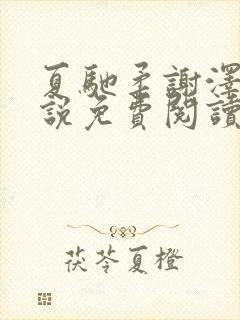 夏馳柔謝澤
說免費閱讀
茯苓夏橙